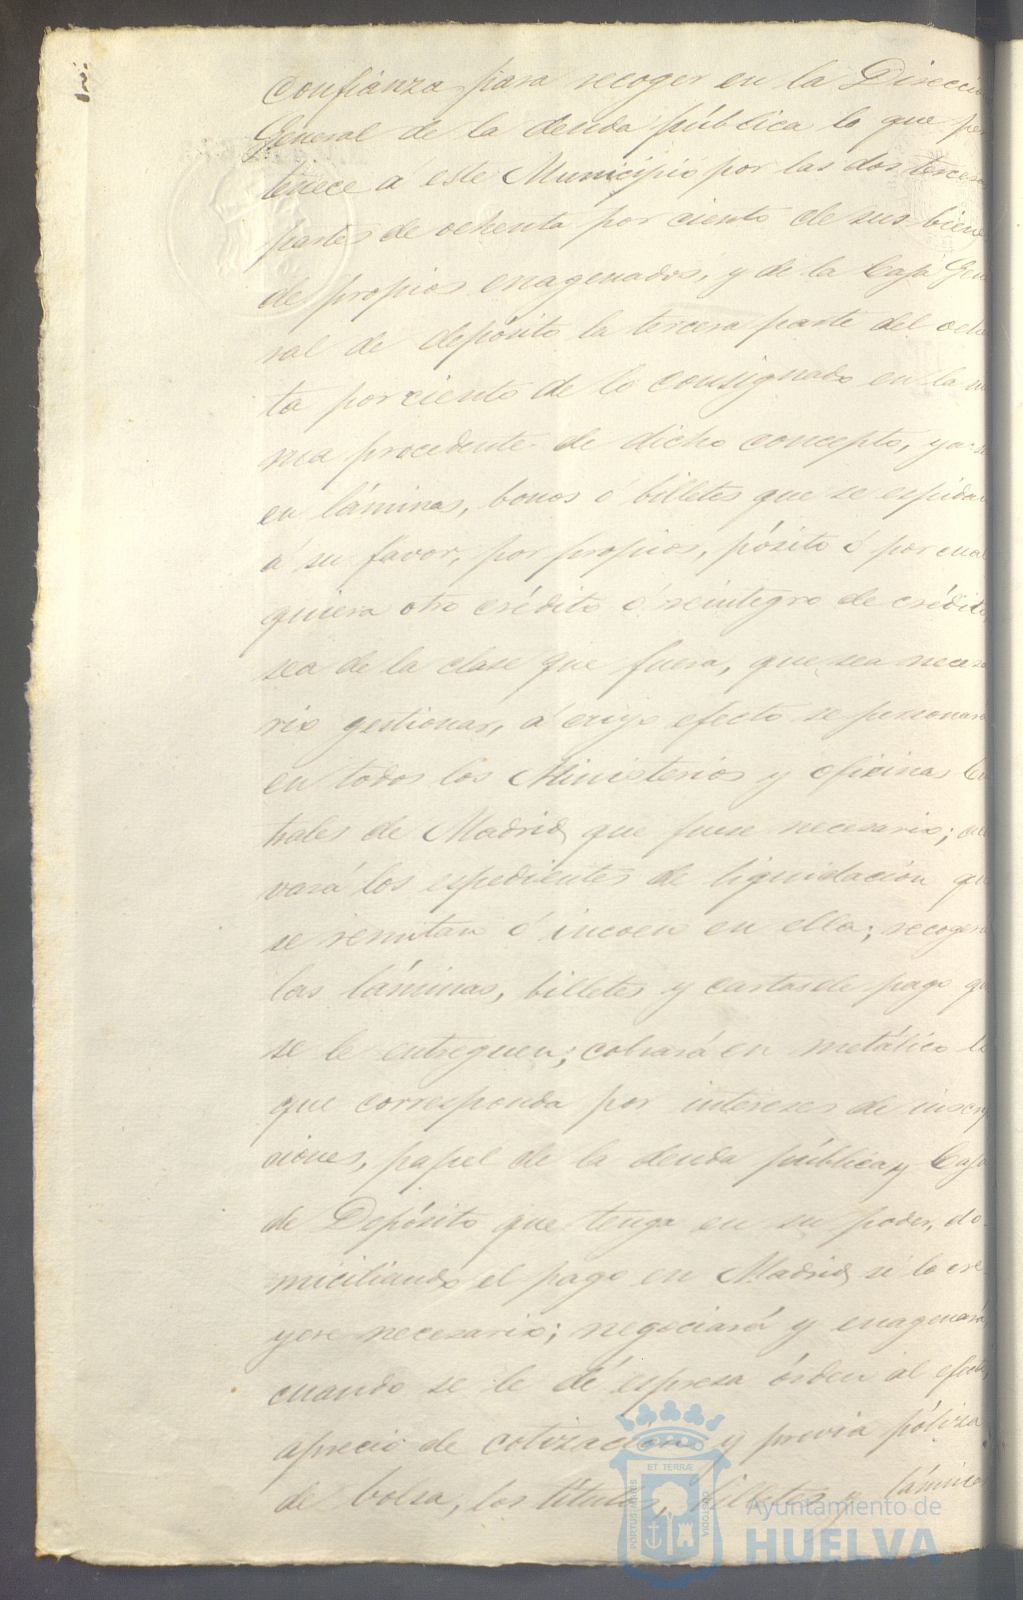 confianza para recoger en la Direcció
General de la deuda pública lo que per
tenece a este Municipio por las dos terceras
partes de ochenta por ciento de sus biene
de propios enagenados, y de la Caja Gene
ral de depósito la tercera parte del oche
ta por ciento de lo consignado en la mi
ma procedente de dicho concepto, ya se
en láminas, bonos ó billetes que se espidan
á su favor, por propios, pósito ó por cual
quiera otro crédito ó reintegro de crédito
sea de la clase que fuera, que sea necesa
rio gestionar, á cuyo efecto se personará
en todos los Ministerios y oficinas Cen
trales de Madrid que fuese necesario;
vará los espedientes de liquidación qu
se remitan ó incoen en ella; recogerá
las láminas, billetes y cartas de pago qu
se le entreguen; cobrará en metálico lo
que corresponda por intereses de inscrip
ciones, papel de la deuda pública y Caja
de Depósito que tenga en su poder, do-
miciliando el pago en Madrid si lo cre-
yere necesario; negociará y enagenará,
cuando se le dé espresa órden al efecto,
aprecio de cotización y previa póliza
de bolsa, los títulos, billetes y láminas
PORTUS MARIS
ET TERRÆ
CUSTODIA
Ayuntamiento de
HUELVA